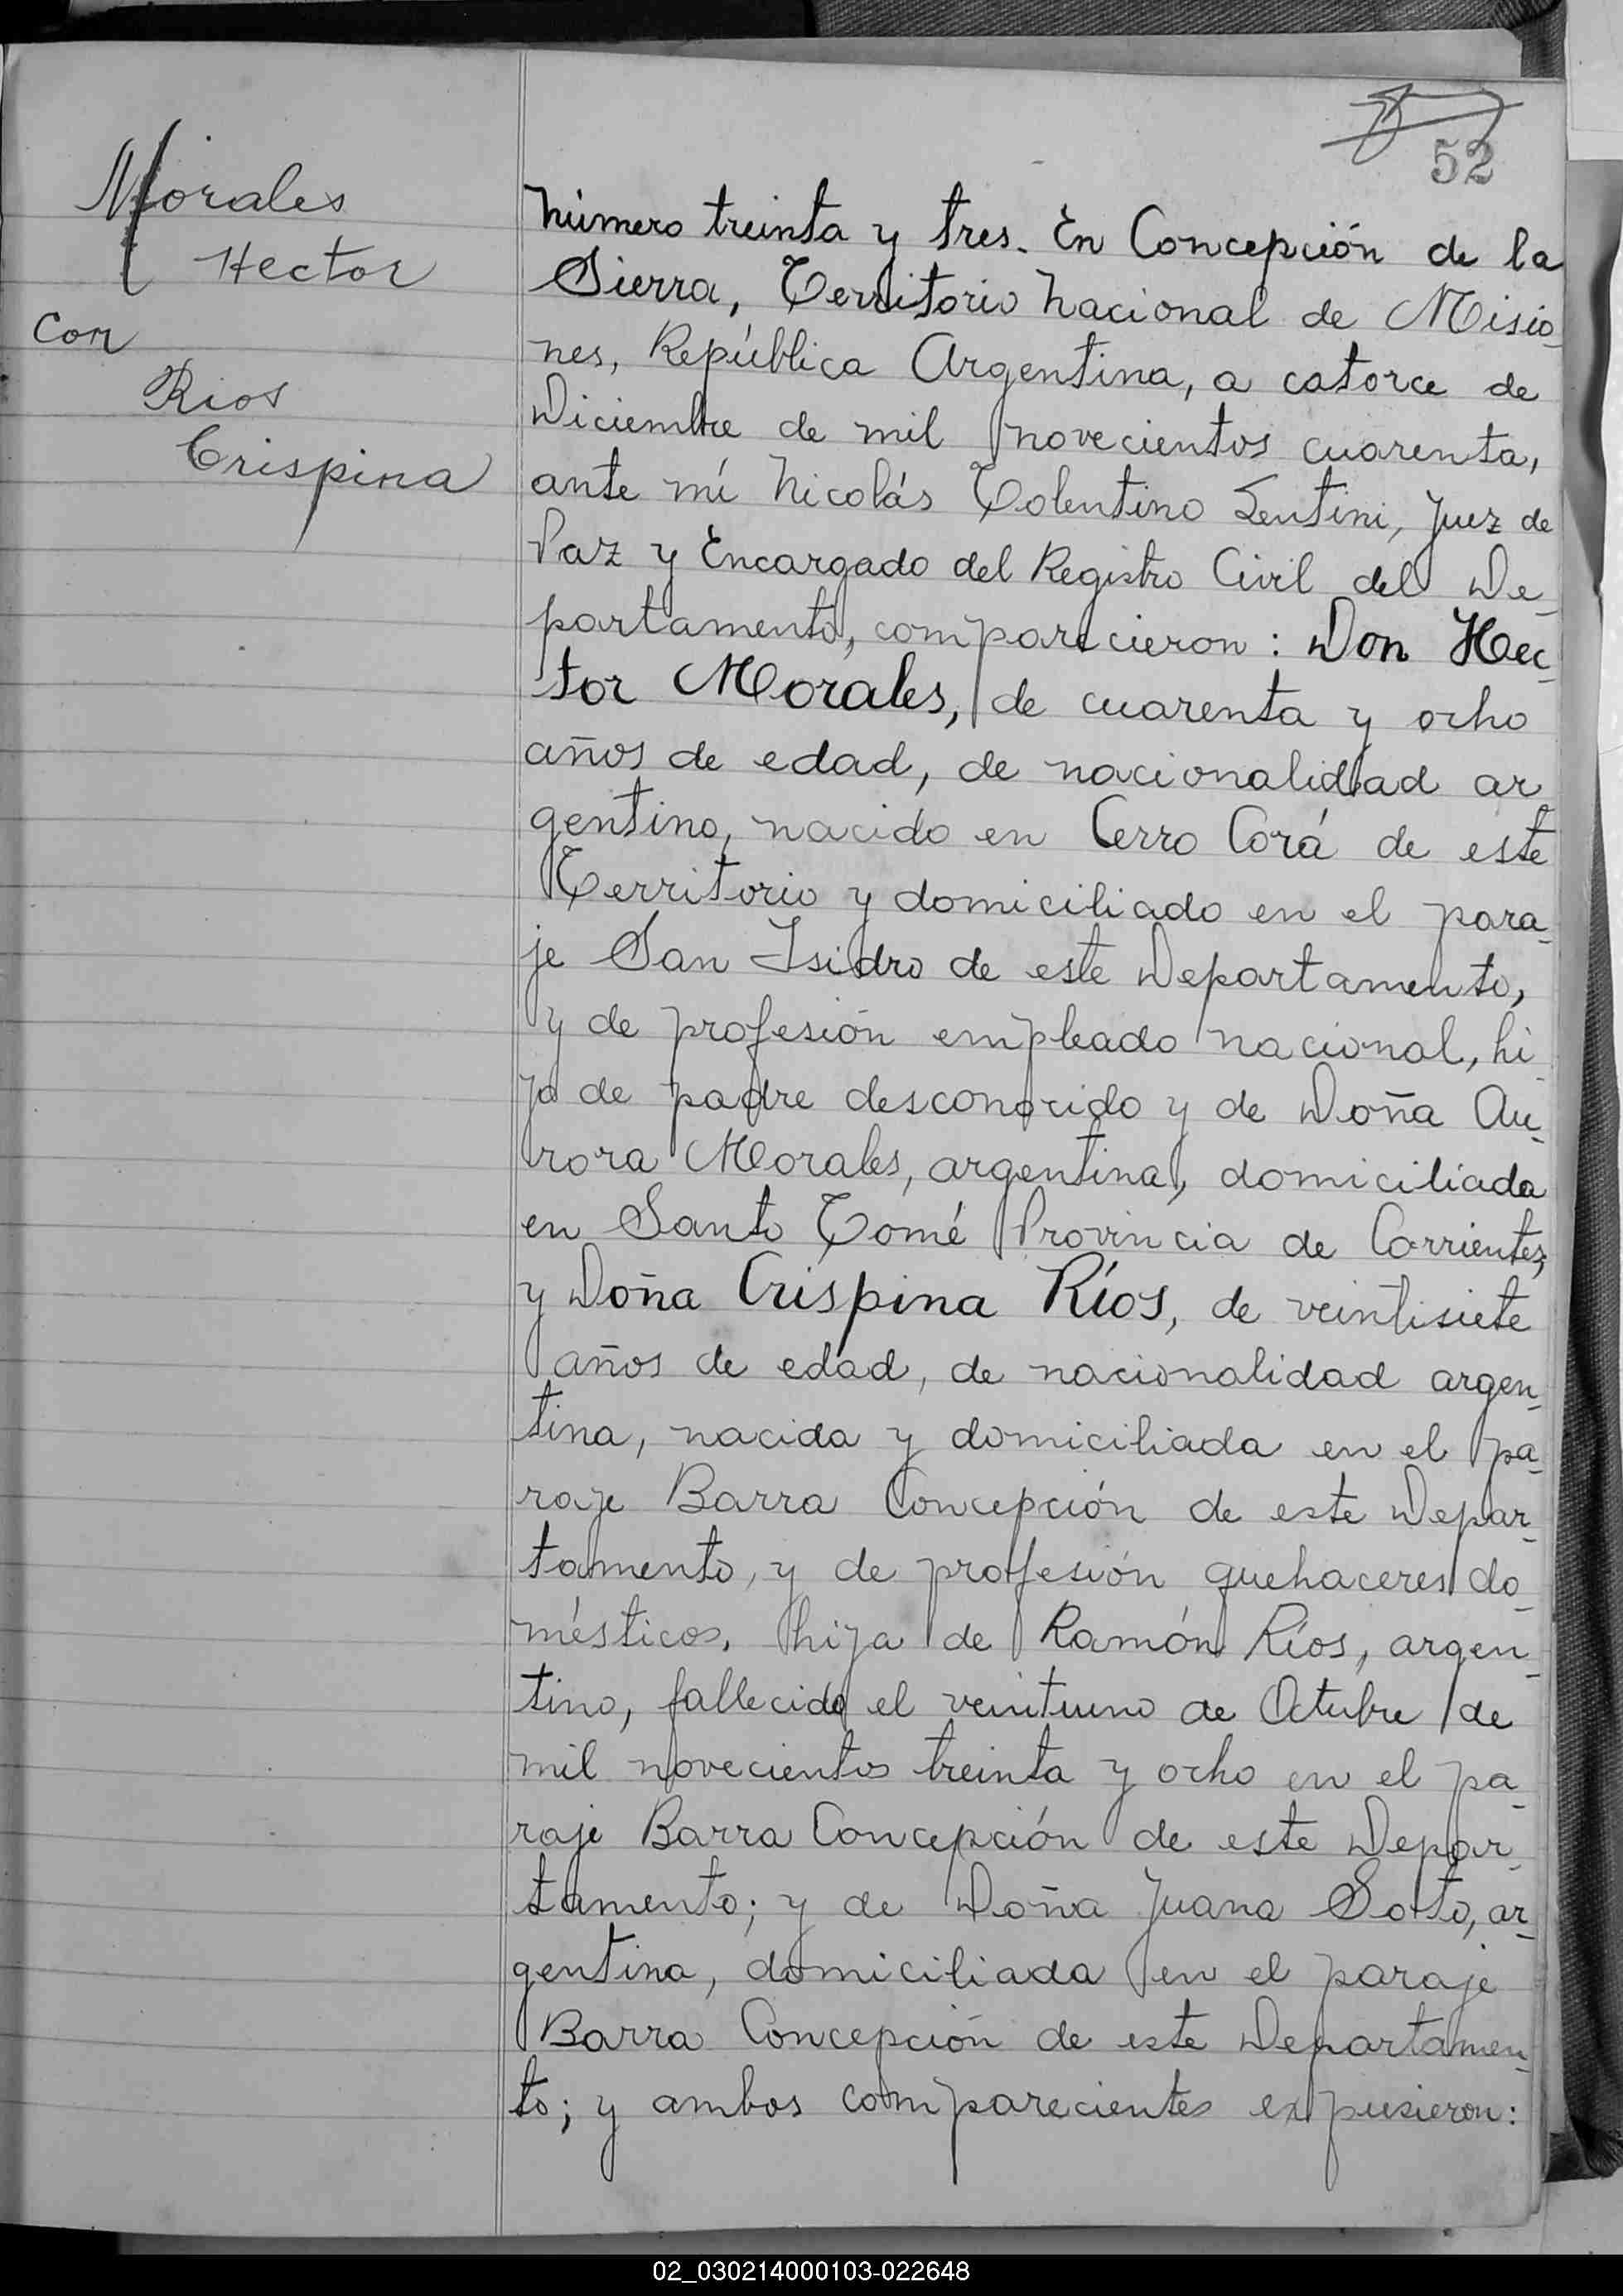 52
Morales
Hector
con
Rios
Crispina
Número treinta y tres. En Concepción de la
Sierra, Territorio Nacional de Misio_
nes, República Argentina, a catorce de
Diciembre de mil novecientos cuarenta,
ante mí Nicolás Tolentino Sentini, Juez de
Paz y Encargado del Registro Civil del De_
partamento, comparecieron: Don Hec_
tor Morales, de cuarenta y ocho
años de edad, de nacionalidad ar_
gentino, nacido en Cerro Corá de este
Territorio y domiciliado en el para_
je San Isidro de este Departamento,
y de profesión empleado nacional, hi_
jo de padre desconocido y de Doña Au_
rora Morales, argentina, domiciliada
en Santo Tomé Provincia de Corrientes,
y Doña Crispina Ríos, de veintisiete
años de edad, de nacionalidad argen_
tina, nacida y domiciliada en el pa_
raje Barra Concepción de este Depar_
tamento, y de profesión quehaceres do_
mésticos, hija de Ramón Ríos, argen_
tino, fallecido el veintiuno de Octubre de
mil novecientos treinta y ocho en el pa_
raje Barra Concepción de este Depar_
tamento; y de Doña Juana Soto, ar_
gentina, domiciliada en el paraje
Barra Concepción de este Departamen_
to; y ambos comparecientes expusieron:
02_030214000103-022648